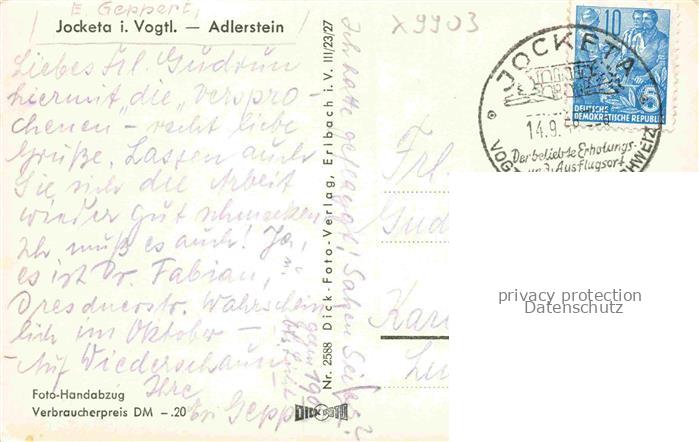 E. Geppert,
Jocketa i. Vogtl. — Adlerstein
Liebes Frl. Gudrun
hiermit „die" verspro-
chenen - recht liebe
Grüße. Lassen auch
Sie sich die Arbeit
wieder gut schmecken
Ich muß es auch! Ja,
es ist Dr. Fabian,
Dresdnerstr. Wahrschein
lich im Oktober —
- Auf Wiederschaun
Ihre
Geppert
Foto-Handabzug
Verbraucherpreis DM –.20
Nr. 2588 Dick-Foto-Verlag, Erlbach i.V. III/23/27
Ich hatte
DICK FOTO
X9903
10
5
DEUTSCHE
DEMOKRATISCHE REPUBLIK
JOCKETA
14.9.
Der beliebte Erholungs-
u. Ausflugsort
VOGTL. SCHWEIZ
Frl.
Gud
Kar
privacy protection
Datenschutz